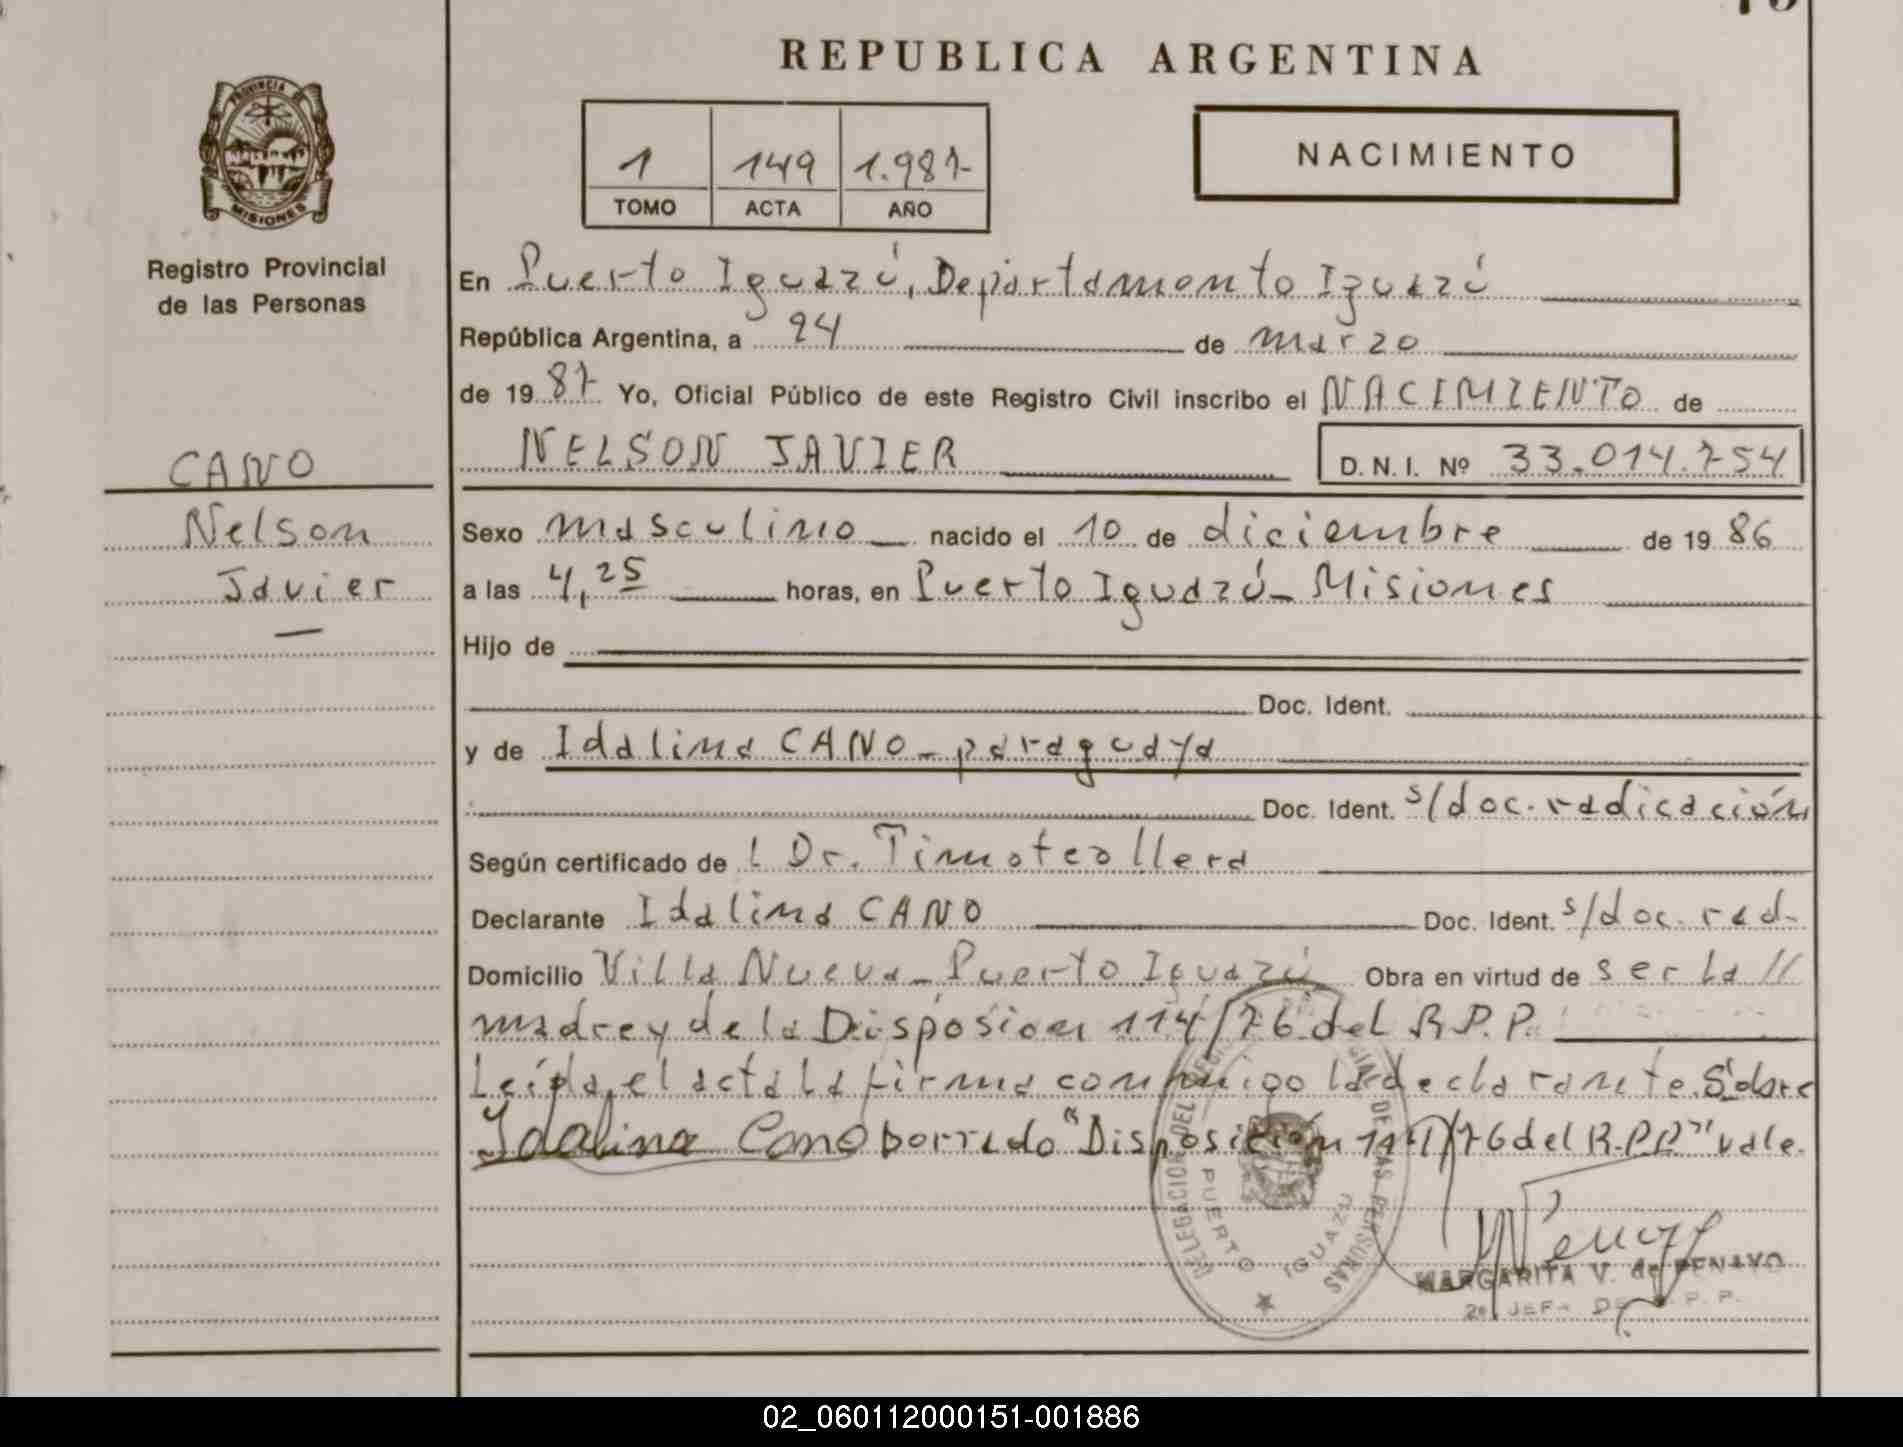 REPUBLICA ARGENTINA
PROVINCIA DE
MISIONES
Registro Provincial
de las Personas
1 149 1.987-
TOMO ACTA AÑO
NACIMIENTO
En Puerto Iguazú, Departamento Iguazú
República Argentina, a 24 de marzo
de 19 87 Yo, Oficial Público de este Registro Civil inscribo el NACIMIENTO de
CANO
NELSON JAVIER D.N.I. Nº 33.014.754
Nelson
Javier
Sexo masculino nacido el 10 de diciembre de 19 86
a las 4,25 horas, en Puerto Iguazú - Misiones
Hijo de
Doc. Ident.
y de Idalina CANO - paraguaya
Doc. Ident. s/doc. radicación
Según certificado de l Dr. Timoteo Llera
Declarante Idalina CANO Doc. Ident. s/doc. rad.
Domicilio Villa Nueva - Puerto Iguazú Obra en virtud de ser la //
madre y de la Disposición 114/76 del R.P.P.
Leída el acta la firma conmigo la declarante. Sobre
Idalina Cano borrado "Disposición 114/76 del R.P.P." vale.
DELEGACION DEL DE LAS PERSONAS
PUERTO IGUAZU
MARGARITA V. de PENAYO
2a. JEFA DE R. P. P.
02_060112000151-001886